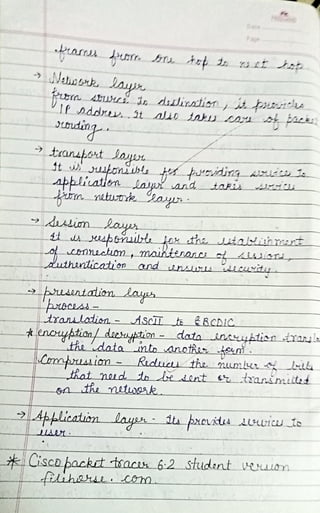 frames from one hop to next hop
→ Network layer
from source to destination, it provides
IP address. It also takes care of packet
routing.
→ transport layer
It is responsible for providing service to
application layer and takes service
from network layer.
→ Session layer
It is responsible for the establishment
of connection, maintenance of sessions,
authentication and ensure security.
→ presentation layer
process -
translation - ASCII to EBCDIC
* encryption/decryption - data encryption translate
the data into another form.
Compression - Reduces the number of bits
that need to be sent or transmitted
on the network.
→ Application layer - Its provides service to
user.
* Cisco packet tracer 6.2 student version
filehorse.com